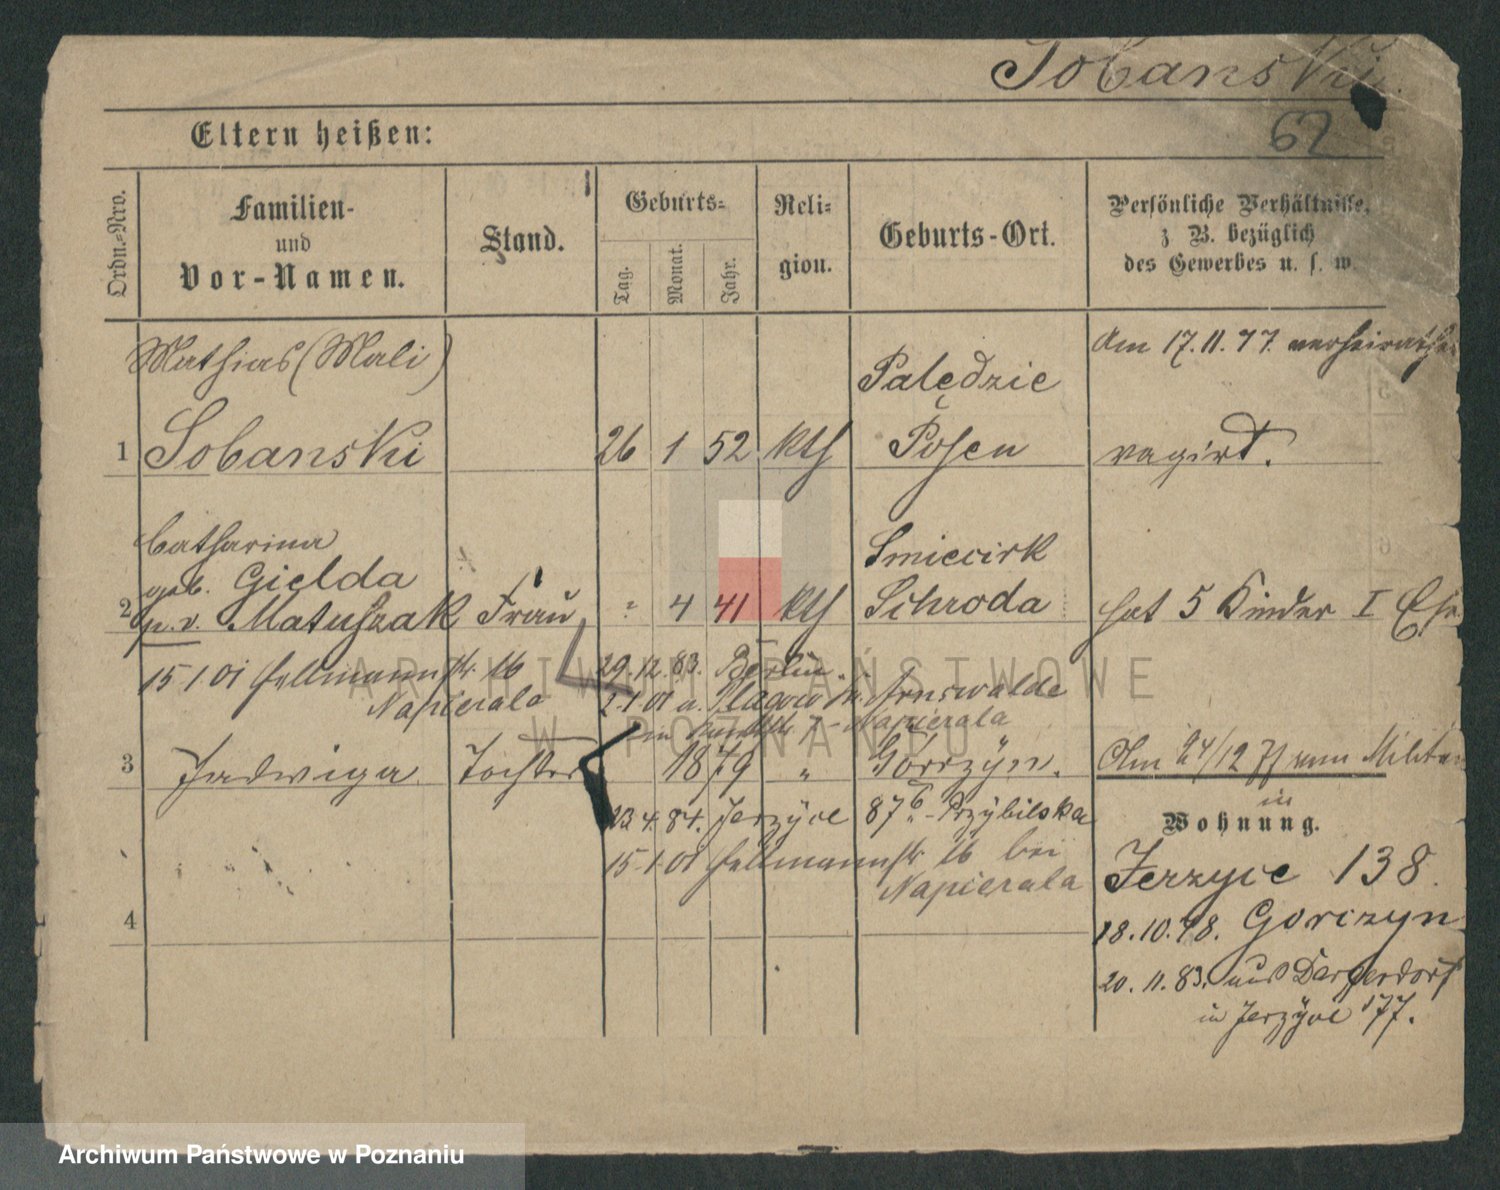 Sobanski
62
Eltern heißen:
Ordn.-Nro.
Familien-
und
Vor-Namen.
Stand.
Geburts-
Tag.
Monat.
Jahr.
Reli-
gion.
Geburts-Ort.
Persönliche Verhältnisse,
z B. bezüglich
des Gewerbes u. s. w.
Mathias (Mali)
Palędzie
Am 17.11.77. verheirathet
1 Sobanski 26 1 52 kth Posen vagirt.
Catharina
Smiecirk
geb. Gielda
2 p. v. Matuszak Frau 4 41 kth Schroda hat 5 Kinder I Ehe
15 1 01 Hellmannstr. 16
Napierala
29.12.83. Berlin.
2.1.01 a. Plagow Kr. Arnswalde
in 7 - Napierala
3 Jadwiga Tochter 1879 " Górczyn.
Am 24/12 77 vom Militär
23.4.84. Jerzyce 87b. - Przybilska
15 1 01 Hellmannstr. 16 bei
Napierala
4
in
Wohnung.
Jerzyce 138.
18.10.78. Gorczyn
20.11.83. aus
in Jerzyce 177.
ARCHIWUM PAŃSTWOWE
W POZNANIU
Archiwum Państwowe w Poznaniu